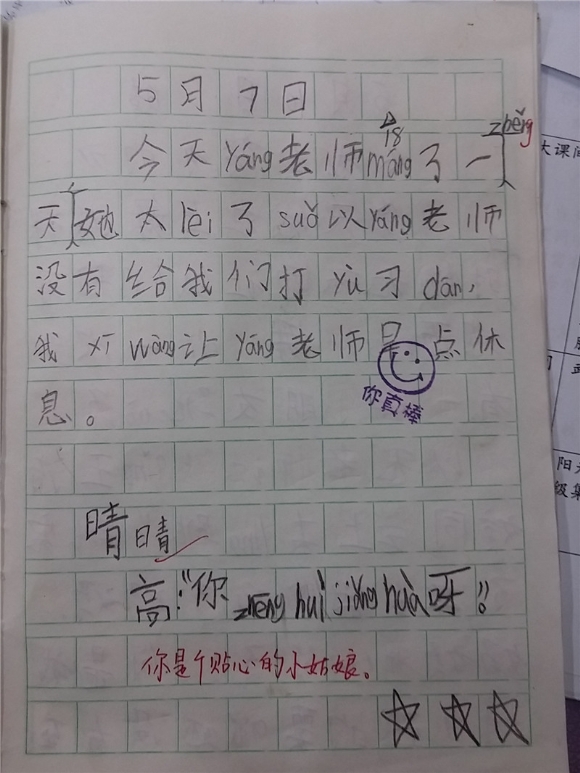 5月7日
zhěng
18
今天yáng老师máng了一
天,她太lèi了suǒ以yáng老师
没有给我们打yù习dān,
我xī wàng让yáng老师早点休
息。
你真棒
晴晴
高:“你zhēng huì jiǎng huà呀!!
你是个贴心的小姑娘。
大课间